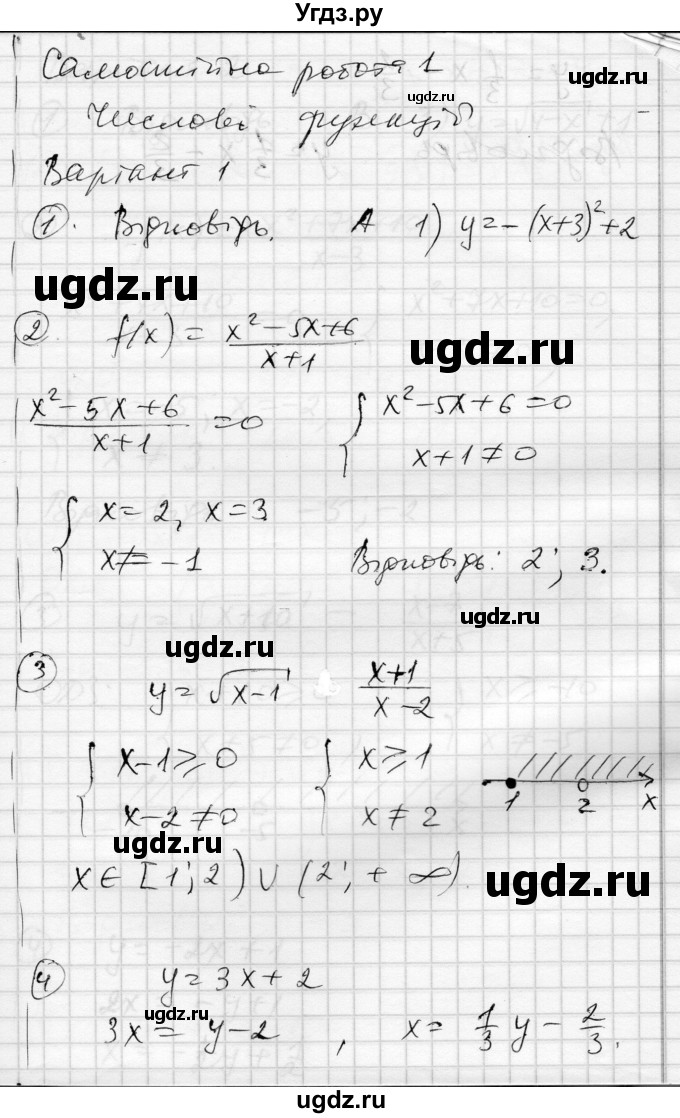 Угдз.ру
Самостійна робота 1
ugdz.ru
ugdz.ru
Числові функції
Варіант 1
1. Відповідь. А 1) y = -(x+3)² + 2
ugdz.ru
2. f(x) = (x² - 5x + 6)/(x + 1)
ugdz.ru
(x² - 5x + 6)/(x + 1) = 0 { x² - 5x + 6 = 0
x + 1 ≠ 0
{ x = 2, x = 3
x ≠ -1 Відповідь: 2; 3.
ugdz.ru
ugdz.ru
3 y = √(x-1) (x+1)/(x-2)
{ x - 1 ⩾ 0 { x ⩾ 1
x - 2 ≠ 0 x ≠ 2 1 2 x
ugdz.ru
x ∈ [1; 2) ∪ (2; + ∞).
ugdz.ru
4 y = 3x + 2
ugdz.ru
3x = y - 2, x = 1/3 y - 2/3.
ugdz.ru
ugdz.ru